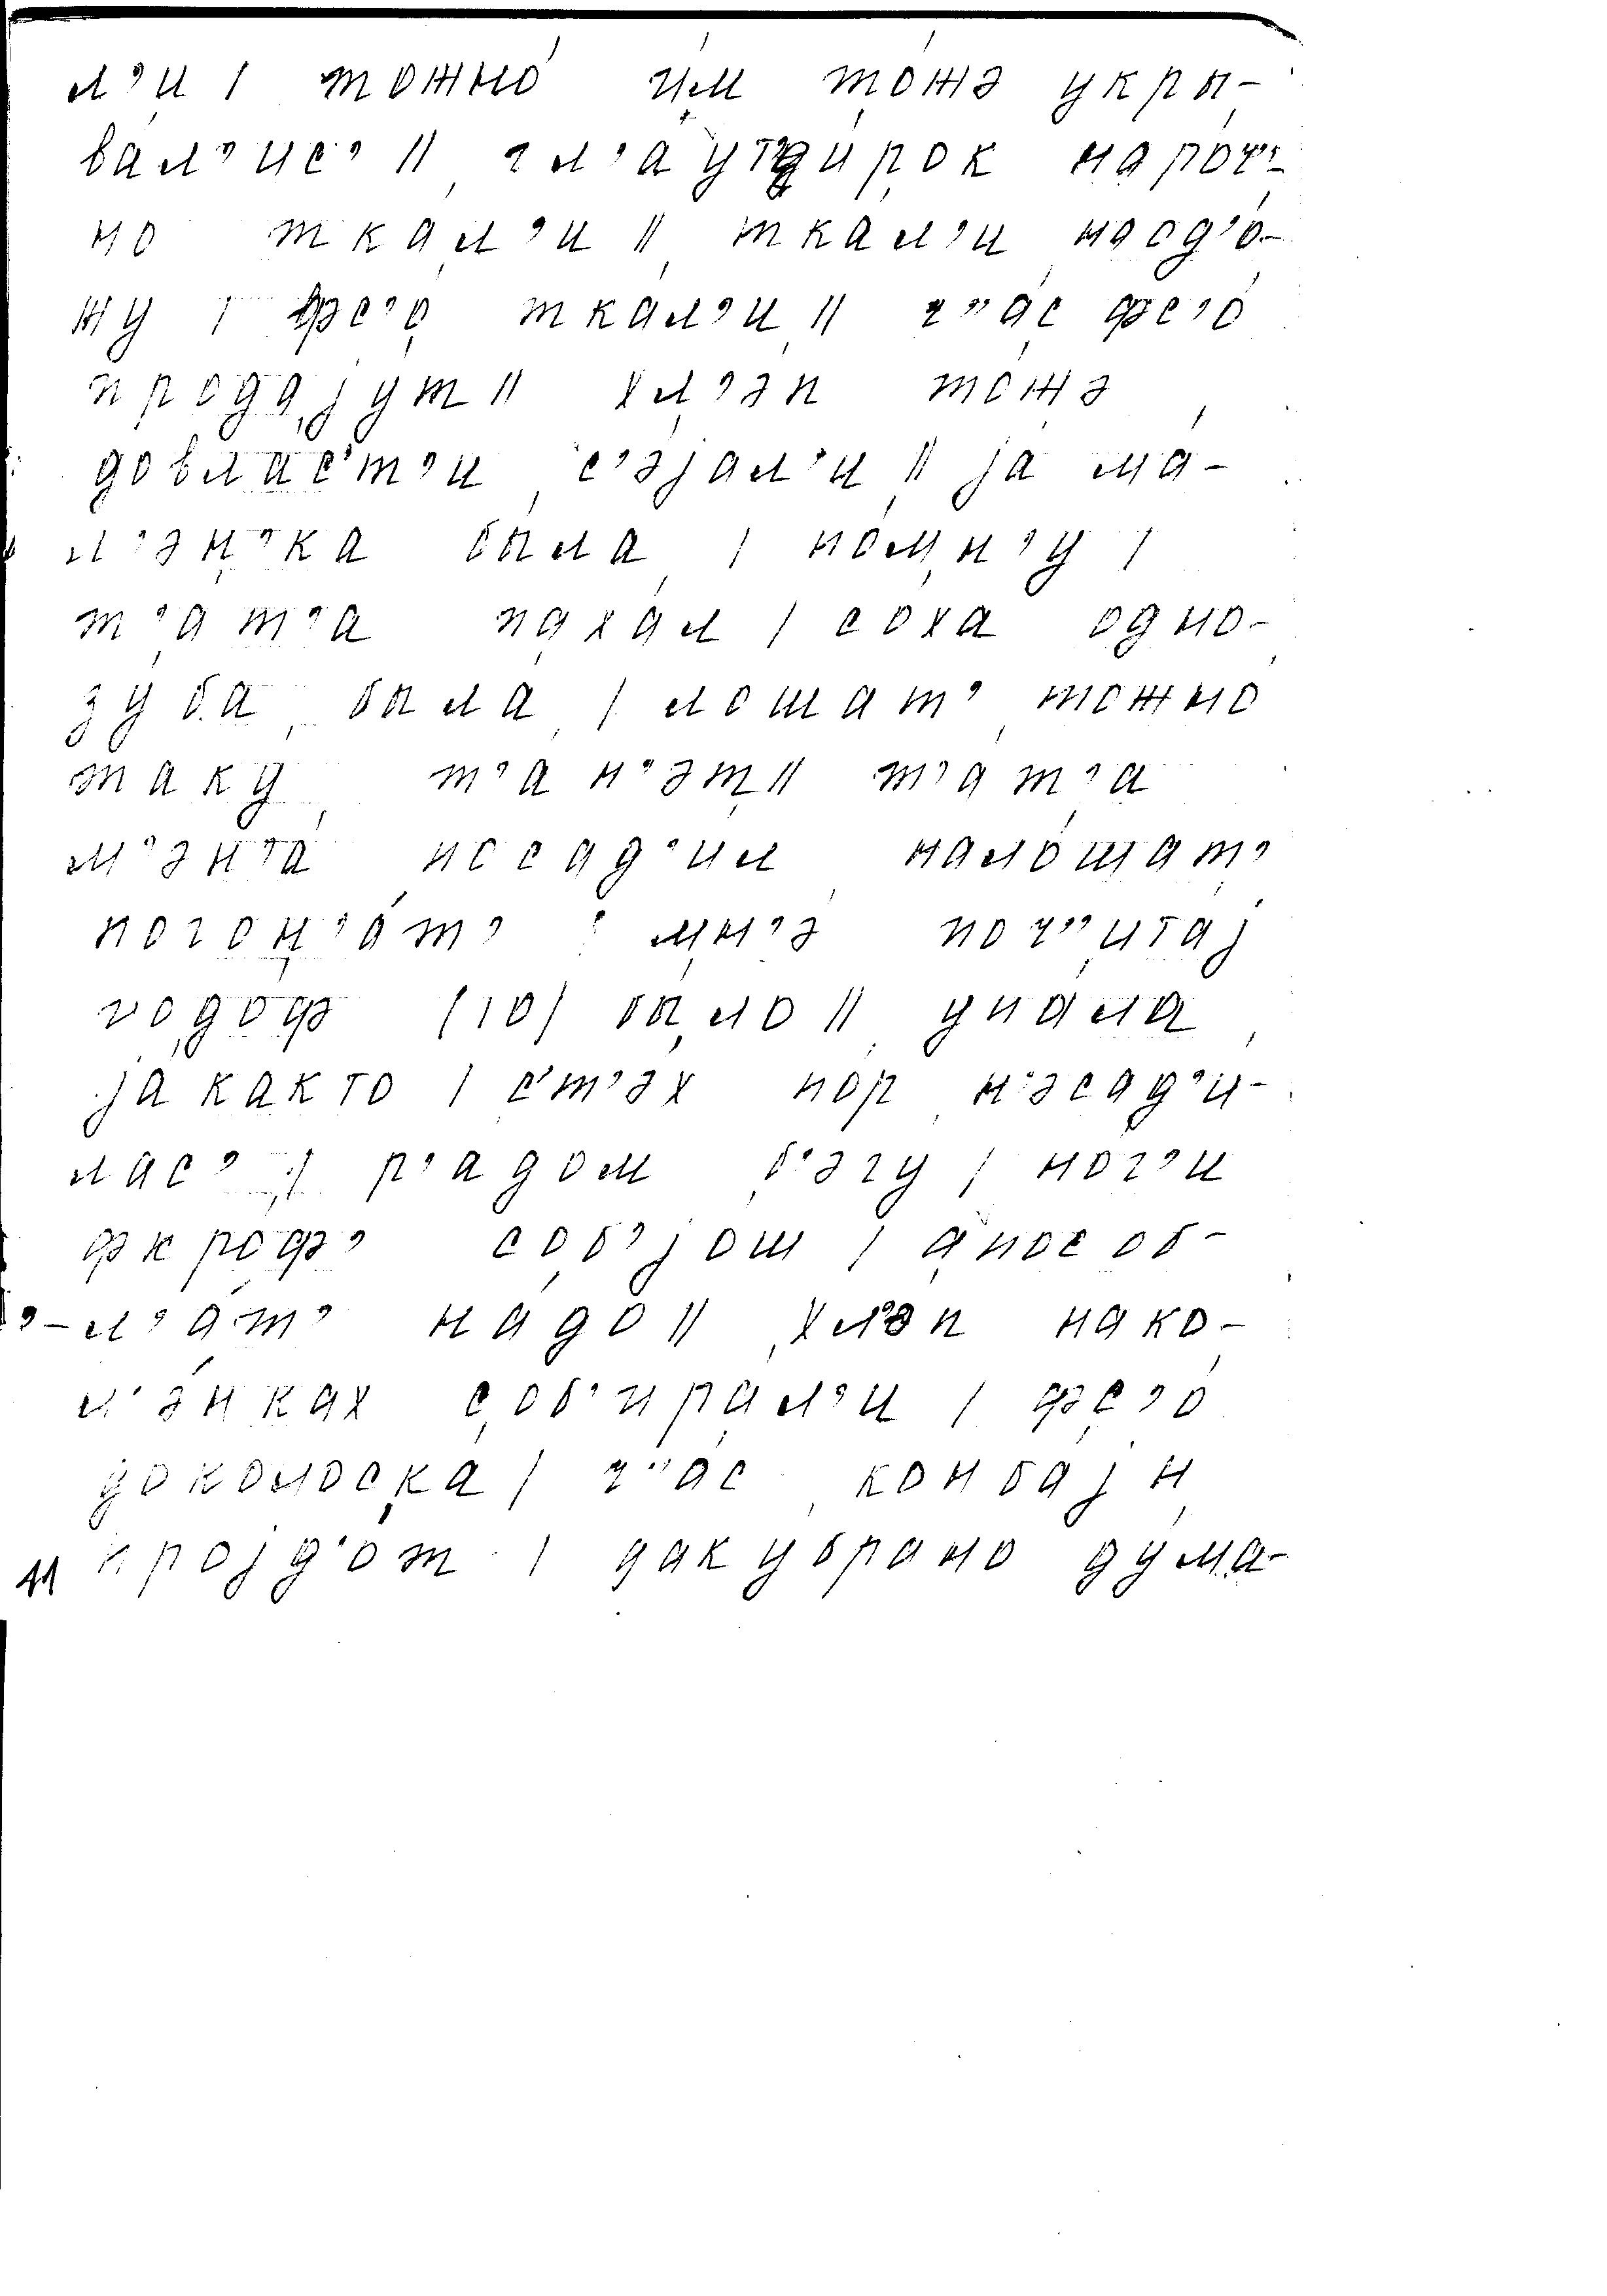 л'и | тожно́ и́м то́жэ укры-
ва́л'ис' || дл'а утирок наро́ч''-
но ткал'и || тка́л'и наод'о́-
жу | фс'о тка́л'и || ч''ас фс'о́
продају́т || хл'эп то́жэ
довла́с'т'и с'э́јал'и || ја ма́-
л'эн'ка была | по́мн'у |
т'а́т'а паха́л | соха одно-
зу́ба была | лошат' тожно́
таку т'а́н'эт || т'а́т'а
м'эн'а́ посад'ил нало́шат'
погон'а́т' | мн'э поч''ита́ј
годо́ф (10) было || упа́ла
ја както | с'т'эх по́р н'эсад'и-
лас' | р'а́дом б'эгу́ | но́г'и
фкро́ф' соб'јо́ш | апособ-
л'а́т' на́до || хл'эп нако-
л'э́нках соб'ира́л'и | фс'о́
доколоска́ | ч''ас комба́јн
пројд'о́т | дак убрано ду́ма-
41